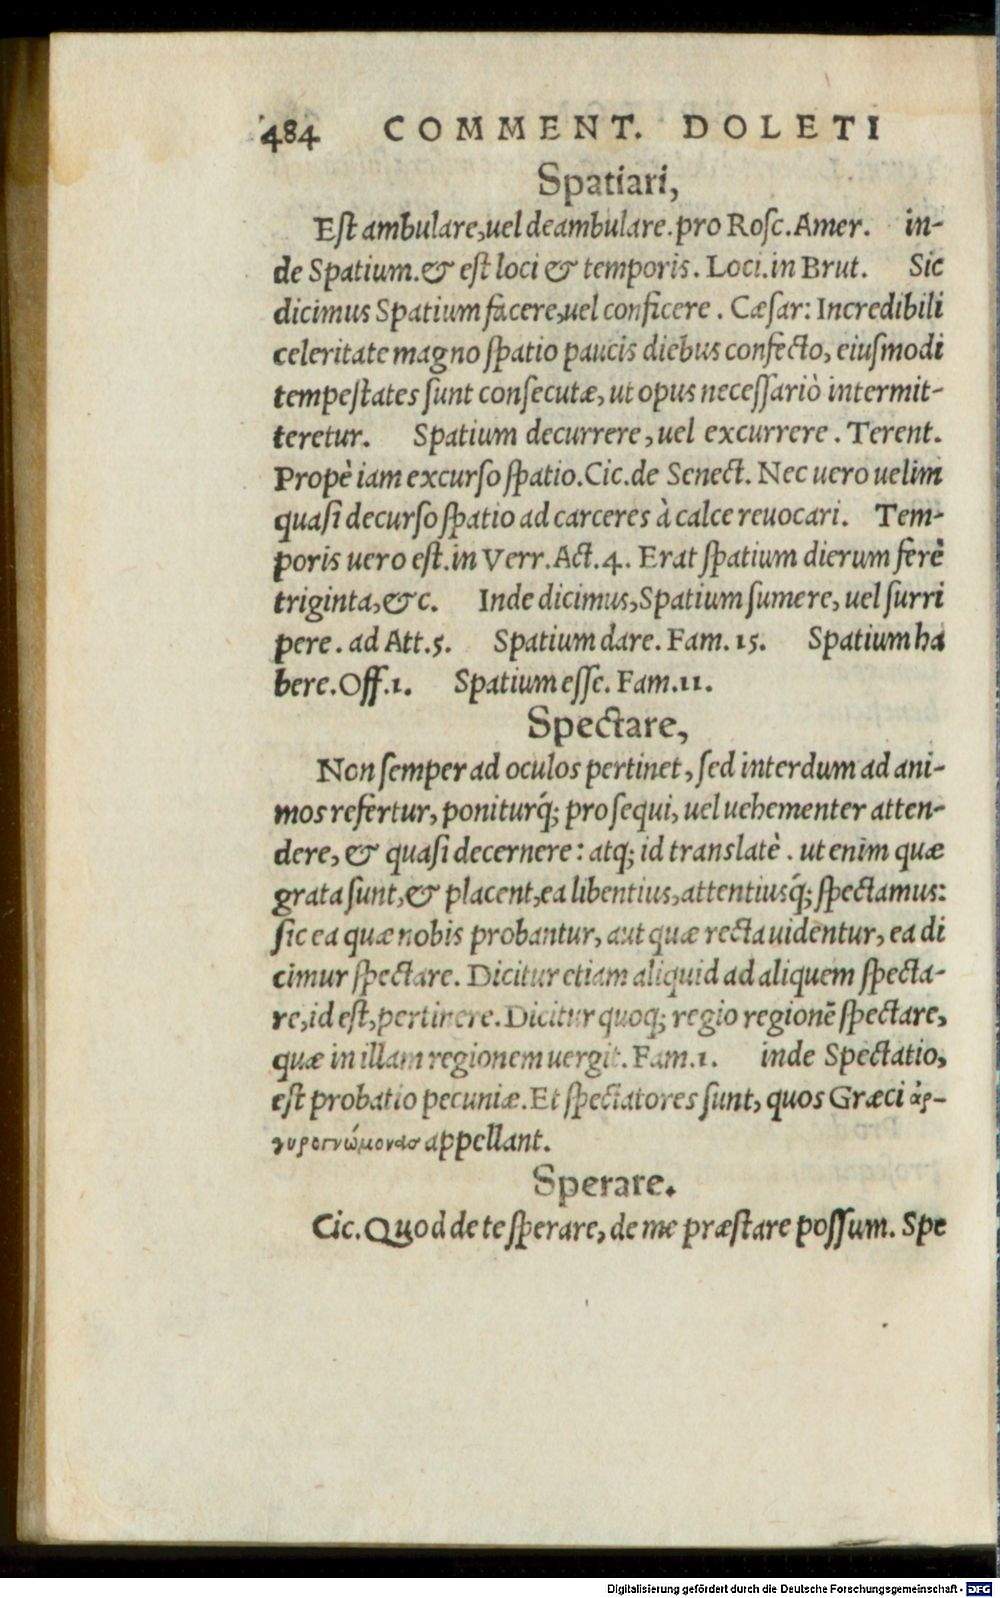 484 COMMENT. DOLETI
Spatiari,
Est ambulare, uel deambulare. pro Rosc. Amer. in-
de Spatium. & est loci & temporis. Loci. in Brut. Sic
dicimus Spatium facere, uel conficere. Cæsar: Incredibili
celeritate magno spatio paucis diebus confecto, eiusmodi
tempestates sunt consecutæ, ut opus necessariò intermit-
teretur. Spatium decurrere, uel excurrere. Terent.
Propè iam excurso spatio. Cic. de Senect. Nec uero uelim
quasi decurso spatio ad carceres à calce reuocari. Tem-
poris uero est. in Verr. Act. 4. Erat spatium dierum ferè
triginta, &c. Inde dicimus, Spatium sumere, uel surri
pere. ad Att. 5. Spatium dare. Fam. 15. Spatium ha
bere. Off. 1. Spatium esse. Fam. 11.
Spectare,
Non semper ad oculos pertinet, sed interdum ad ani-
mos refertur, poniturq́; pro sequi, uel uehementer atten-
dere, & quasi decernere: atq; id translatè. ut enim quæ
grata sunt, & placent, ea libentius, attentiusq́; spectamus:
sic ea quæ nobis probantur, aut quæ recta uidentur, ea di
cimur spectare. Dicitur etiam aliquid ad aliquem specta-
re, id est, pertinere. Dicitur quoq; regio regionē spectare,
quæ in illam regionem uergit. Fam. 1. inde Spectatio,
est probatio pecuniæ. Et spectatores sunt, quos Græci ἀρ-
γυρογνώμονας appellant.
Sperare.
Cic. Quod de te sperare, de me præstare possum. Spe
Digitalisierung gefördert durch die Deutsche Forschungsgemeinschaft - DFG